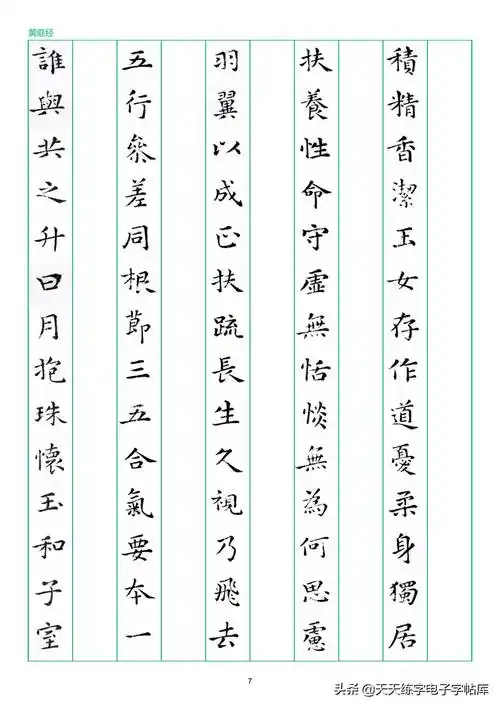 黄庭经
積精香潔玉女存作道憂柔身獨居
扶養性命守虛無恬惔無為何思慮
羽翼以成正扶疏長生久視乃飛去
五行參差同根節三五合氣要本一
誰與共之升日月抱珠懷玉和子室
7
头条 @天天练字电子字帖库